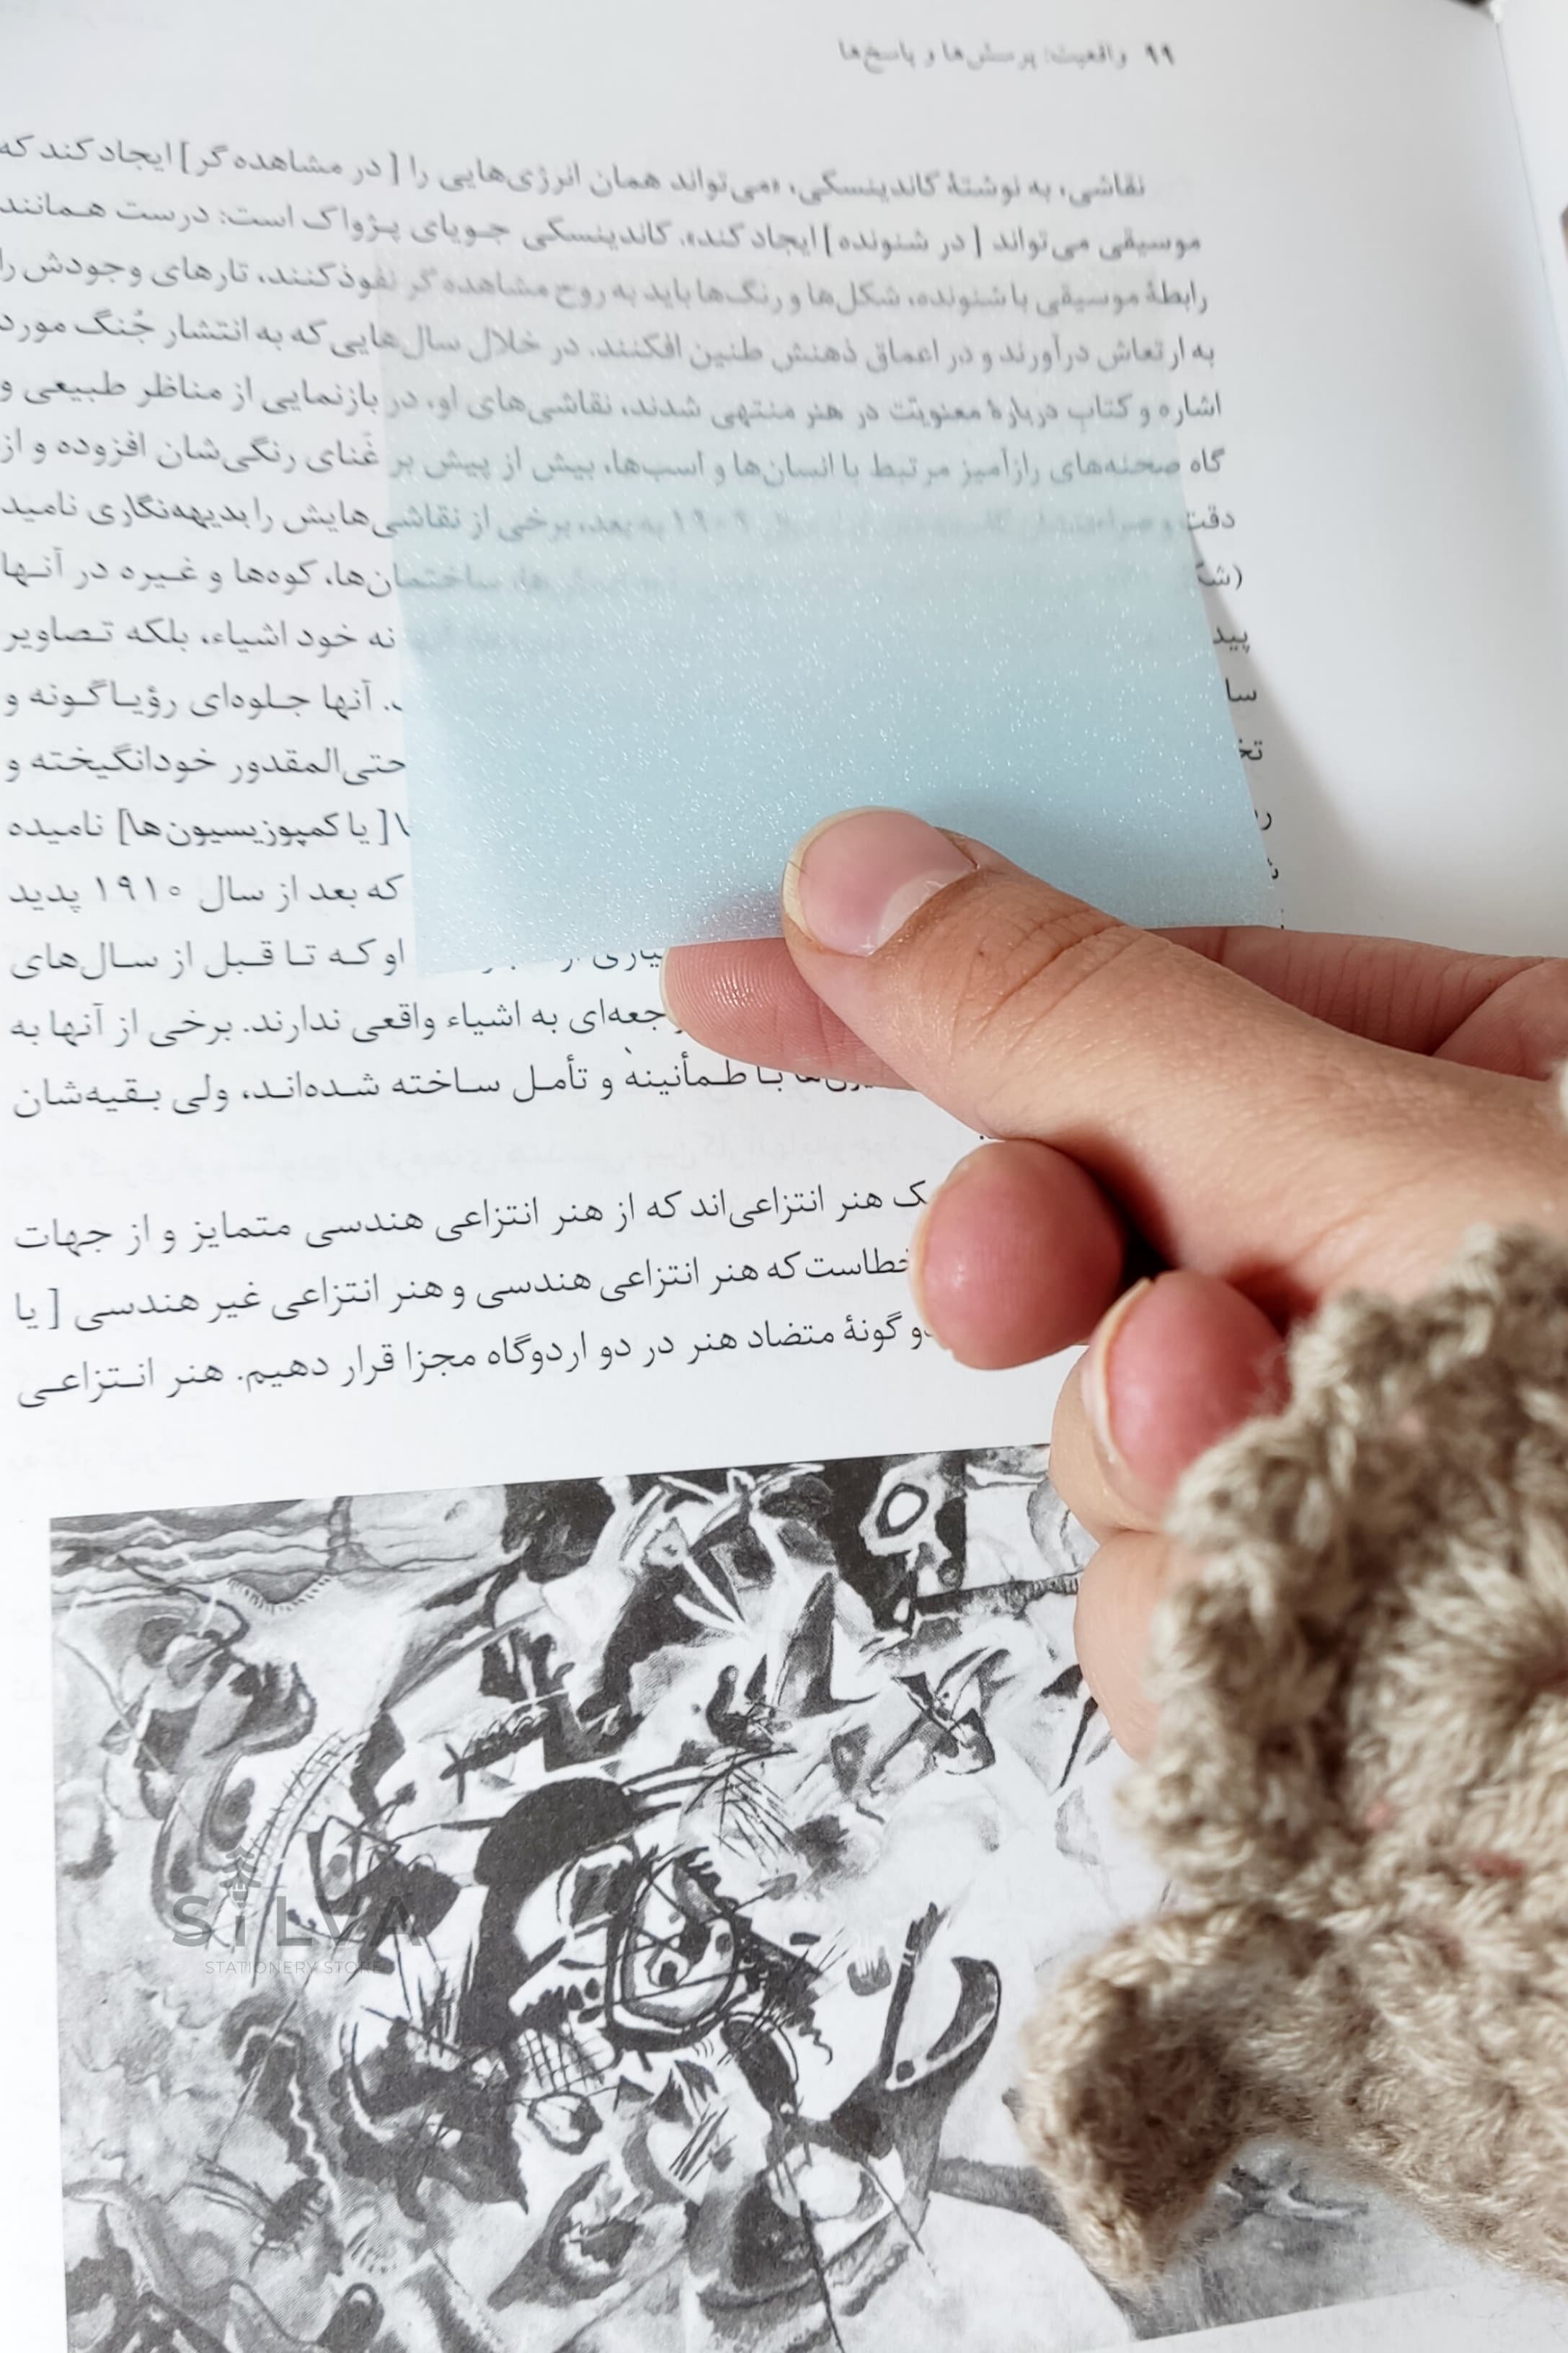 ۹۹ واقعیت: پرسش‌ها و پاسخ‌ها
نقاشی، به نوشتهٔ کاندینسکی، «می‌تواند همان انرژی‌هایی را [در مشاهده‌گر] ایجاد کند که
موسیقی می‌تواند [در شنونده] ایجاد کند». کاندینسکی جویای پژواک است: درست همانند
رابطهٔ موسیقی با شنونده، شکل‌ها و رنگ‌ها باید به روح مشاهده‌گر نفوذ کنند، تارهای وجودش را
به ارتعاش درآورند و در اعماق ذهنش طنین افکنند. در خلال سال‌هایی که به انتشار جُنگ مورد
اشاره و کتاب دربارهٔ معنویّت در هنر منتهی شدند، نقاشی‌های او، در بازنمایی از مناظر طبیعی و
گاه صحنه‌های رازآمیز مرتبط با انسان‌ها و اسب‌ها، بیش از پیش بر غَنای رنگی‌شان افزوده و از
دقت و ۱۹۰۹ به بعد، برخی از نقاشی‌هایش را بدیهه‌نگاری نامید
ساختمان‌ها، کوه‌ها و غیره در آنها
نه خود اشیاء، بلکه تصاویر
آنها جلوه‌ای رؤیاگونه و
حتی‌المقدور خودانگیخته و
[یا کمپوزیسیون‌ها] نامیده
که بعد از سال ۱۹۱۰ پدید
او که تا قبل از سال‌های
به اشیاء واقعی ندارند. برخی از آنها به
با طمأنینه و تأمل ساخته شده‌اند، ولی بقیه‌شان
هنر انتزاعی‌اند که از هنر انتزاعی هندسی متمایز و از جهات
خطاست که هنر انتزاعی هندسی و هنر انتزاعی غیر هندسی [یا
دو گونهٔ متضاد هنر در دو اردوگاه مجزا قرار دهیم. هنر انتزاعی
SiLVA
STATIONERY STORE